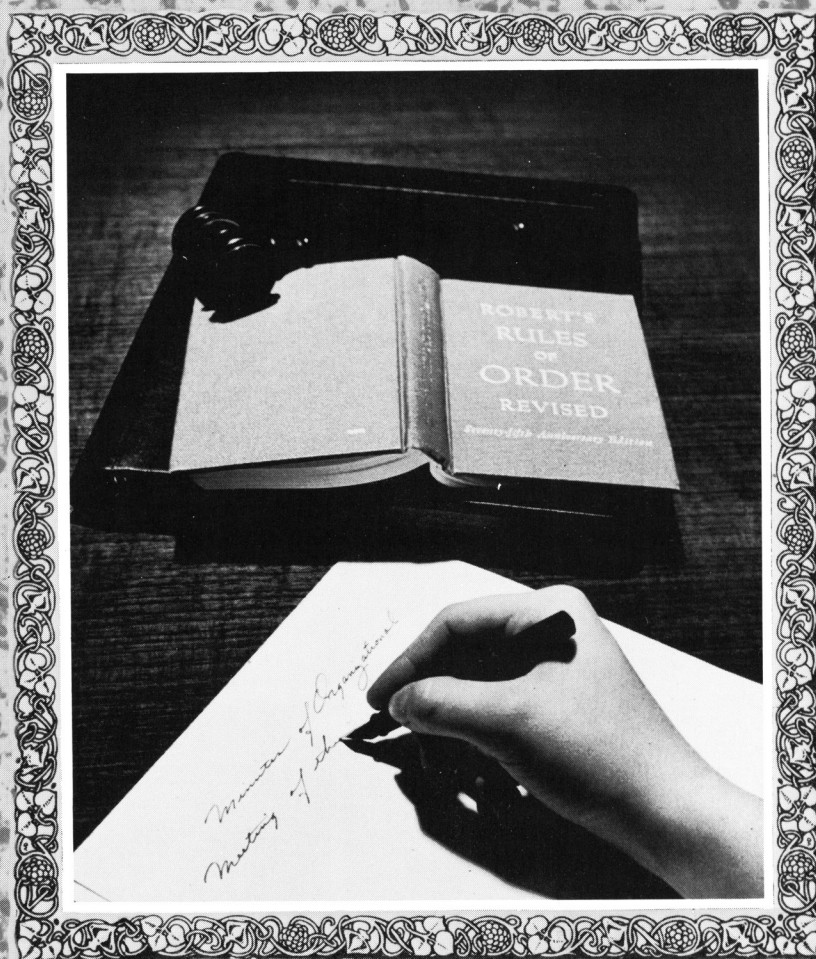 ROBERT'S
RULES
OF
ORDER
REVISED
Seventy-fifth Anniversary Edition
Minutes of Organizational
Meeting of the